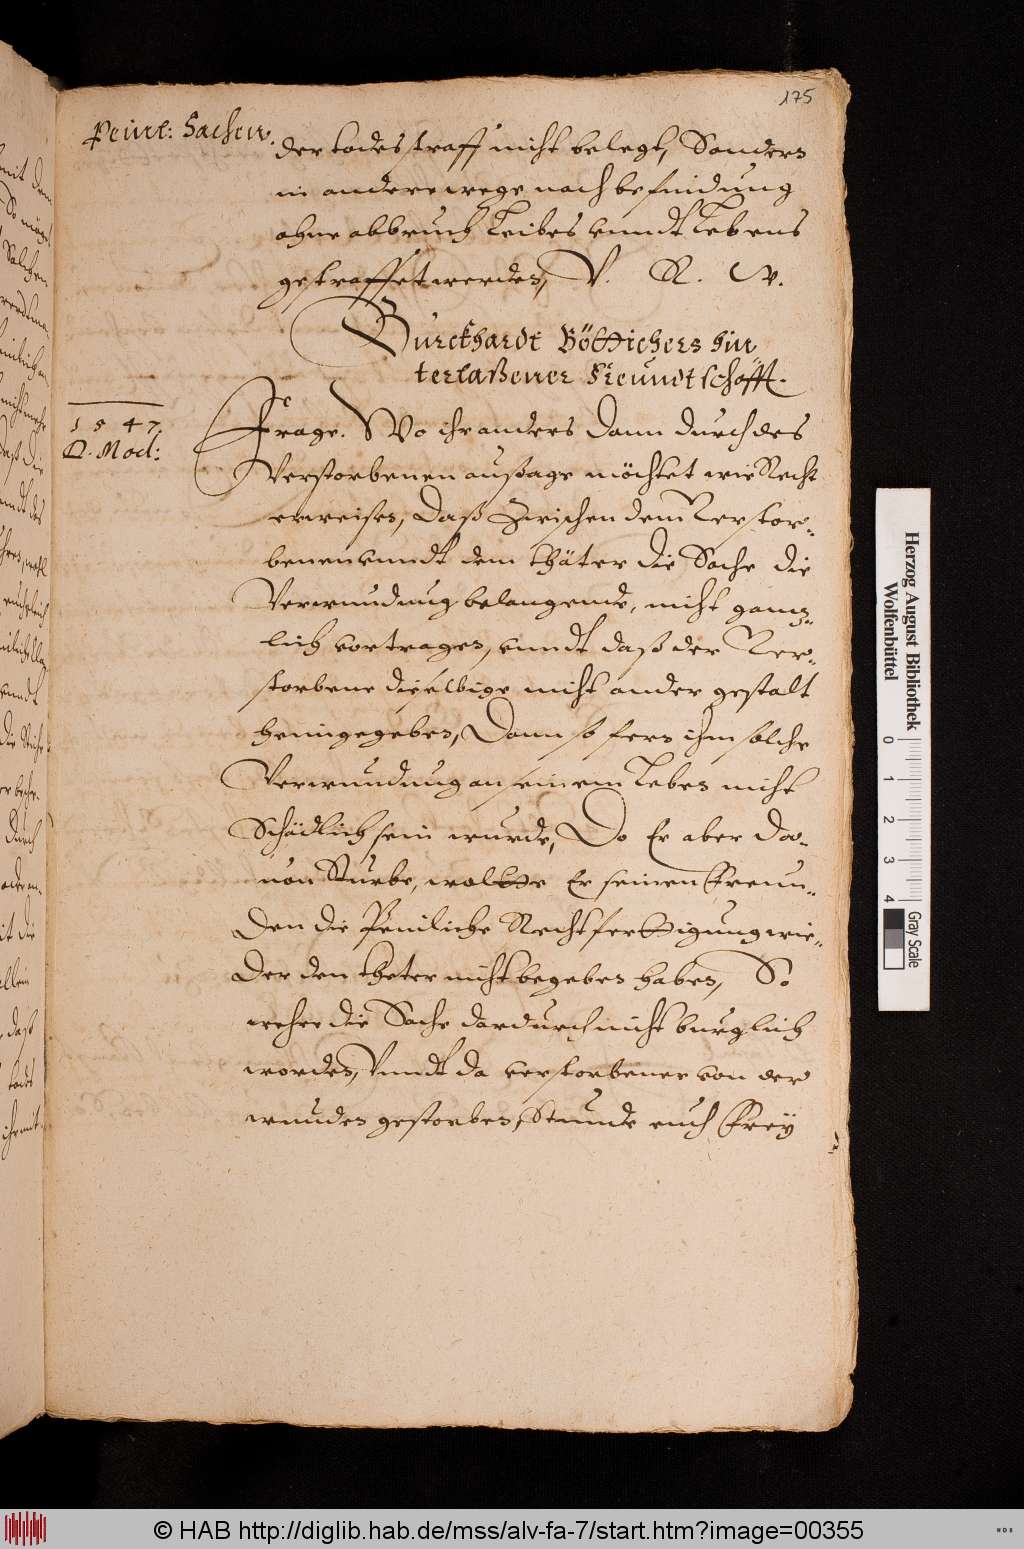 175
Peinl: Sachen.
der todesstraff nicht belegt, Sondern
in andere wege nach befindung
ohne abbruch Leibes vnndt Lebens
gestraffet werden, V. R. W.
Burckhardt Böttichers hin
terlaßener Freundtschafft.
1547.
Q. Mod:
Frage. Wo ihr anders dann durch des
Verstorbenen außage möchtet wie Recht
erweisen, Daß Zwischen dem Verstor-
benen vnndt dem thäter die Sache die
Verwundung belangende, nicht gantz-
lich vortragen, vnndt daß der Ver-
storbene dieselbige nicht ander gestalt
henngegeben, Dann so fern ihm solche
Verwundung an seinem Leben nicht
Schädlich sein wurde, Do Er aber da-
uon Sturbe, woltte Er seinen Freun-
den die Peinliche Rechtferttigung wie-
der den theter nicht begeben haben, So
wehre die Sache dardurch nicht burglich
worden, Vnndt da verstorbener von der
wunden gestorben, Stunde euch Frey
Herzog August Bibliothek
Wolfenbüttel
0 1 2 3 4
Gray Scale
© HAB http://diglib.hab.de/mss/alv-fa-7/start.htm?image=00355